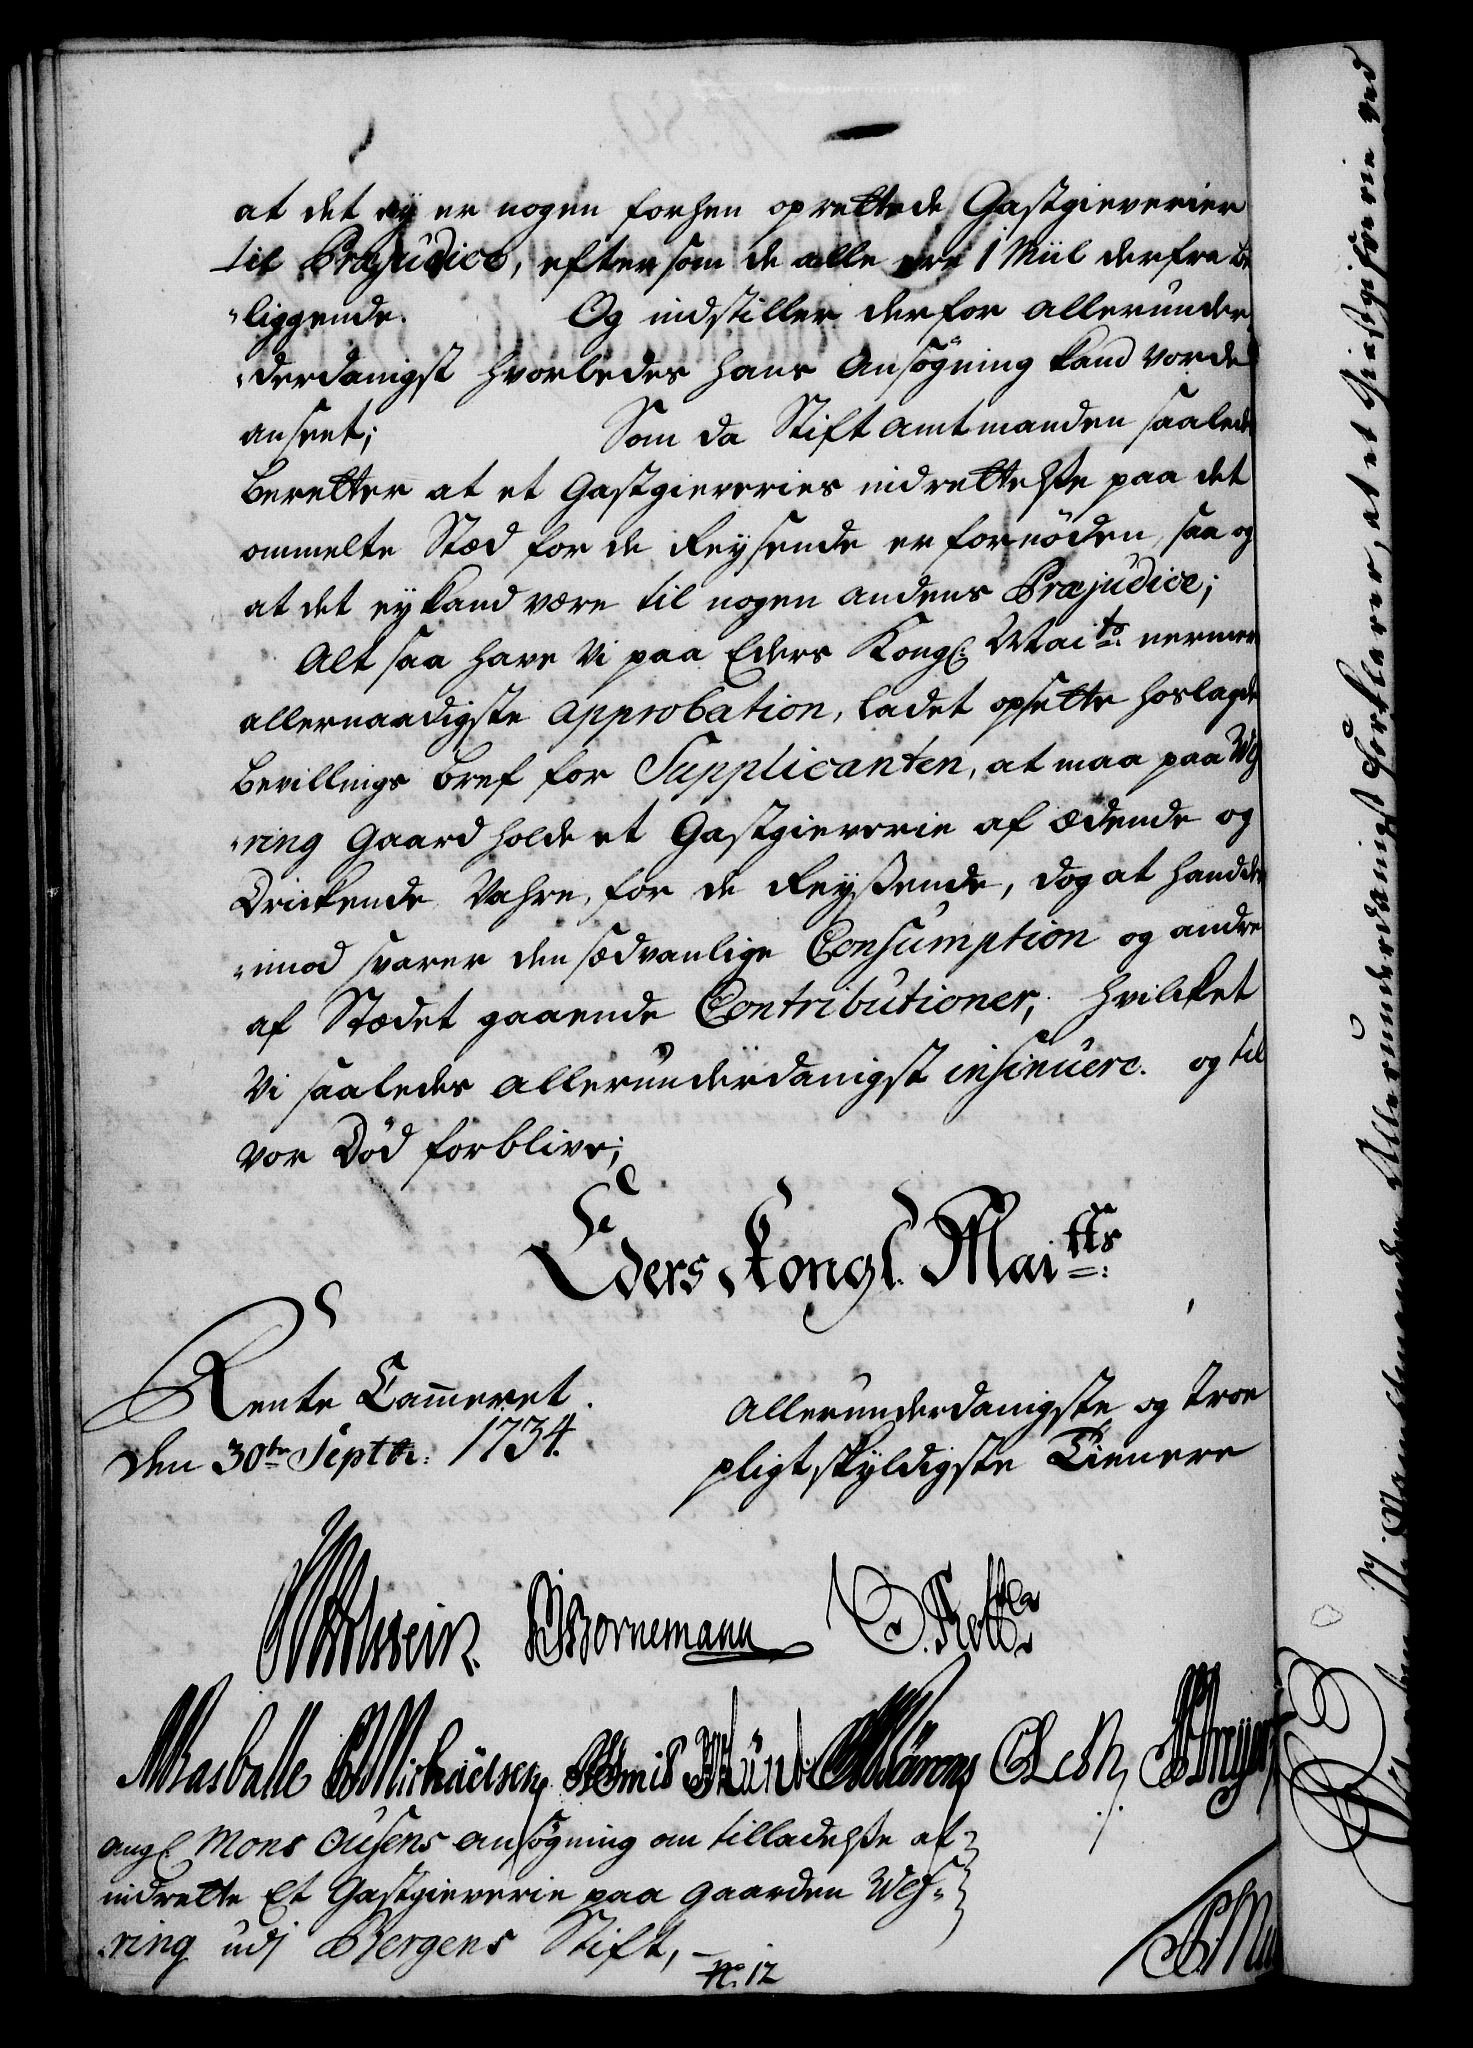 at det ey er nogen forhen oprettede Gastgieverier
til Præjudice, eftersom de alle ere 1 Miil derfra be
liggende. Og indstiller derfor allerunder,
derdanigst hvorledes hans Ansøgning kand vorde
anseet; Som da Stiftamtmanden saaledes
beretter at et Gastgieveries indrettelse paa det
ommelte Stæd for de Reysende er fornøden, saa og
at det ey kand være til nogen andens Præjudice;
Alt saa have Vi paa Eders Kongl: Mai.ts nermere
allernaadigste approbation, ladet opsette hoslagde
bevillings bref for Supplicanten, at maa paa Wef
ring Gaard holde et Gastgieverie af ædende og
Drickende Vahre, for de Reyssende, dog at hand der
imod svarer den sædvanlige Consumption og andre
af Stædet gaaende Contributioner, hvilcket
Vi saaledes allerunderdanigst insinuere. og til
vor Død forblive;
Eders Kongl. Mai.tts
Rente Cammeret.
Den 30te Septbr: 1734.
Allerunderdanigste og troe
pligtskyldigste Tienere
Bornemann
Rasballe Michaelsen
angl. Mons Ousens ansøgning om tilladelse at
indrette Et Gastgieverie paa gaarden Wef-
ring udj Bergens Stift,
No. 12
Allerunderdanigst forklarer, at et Giestgiferie ved